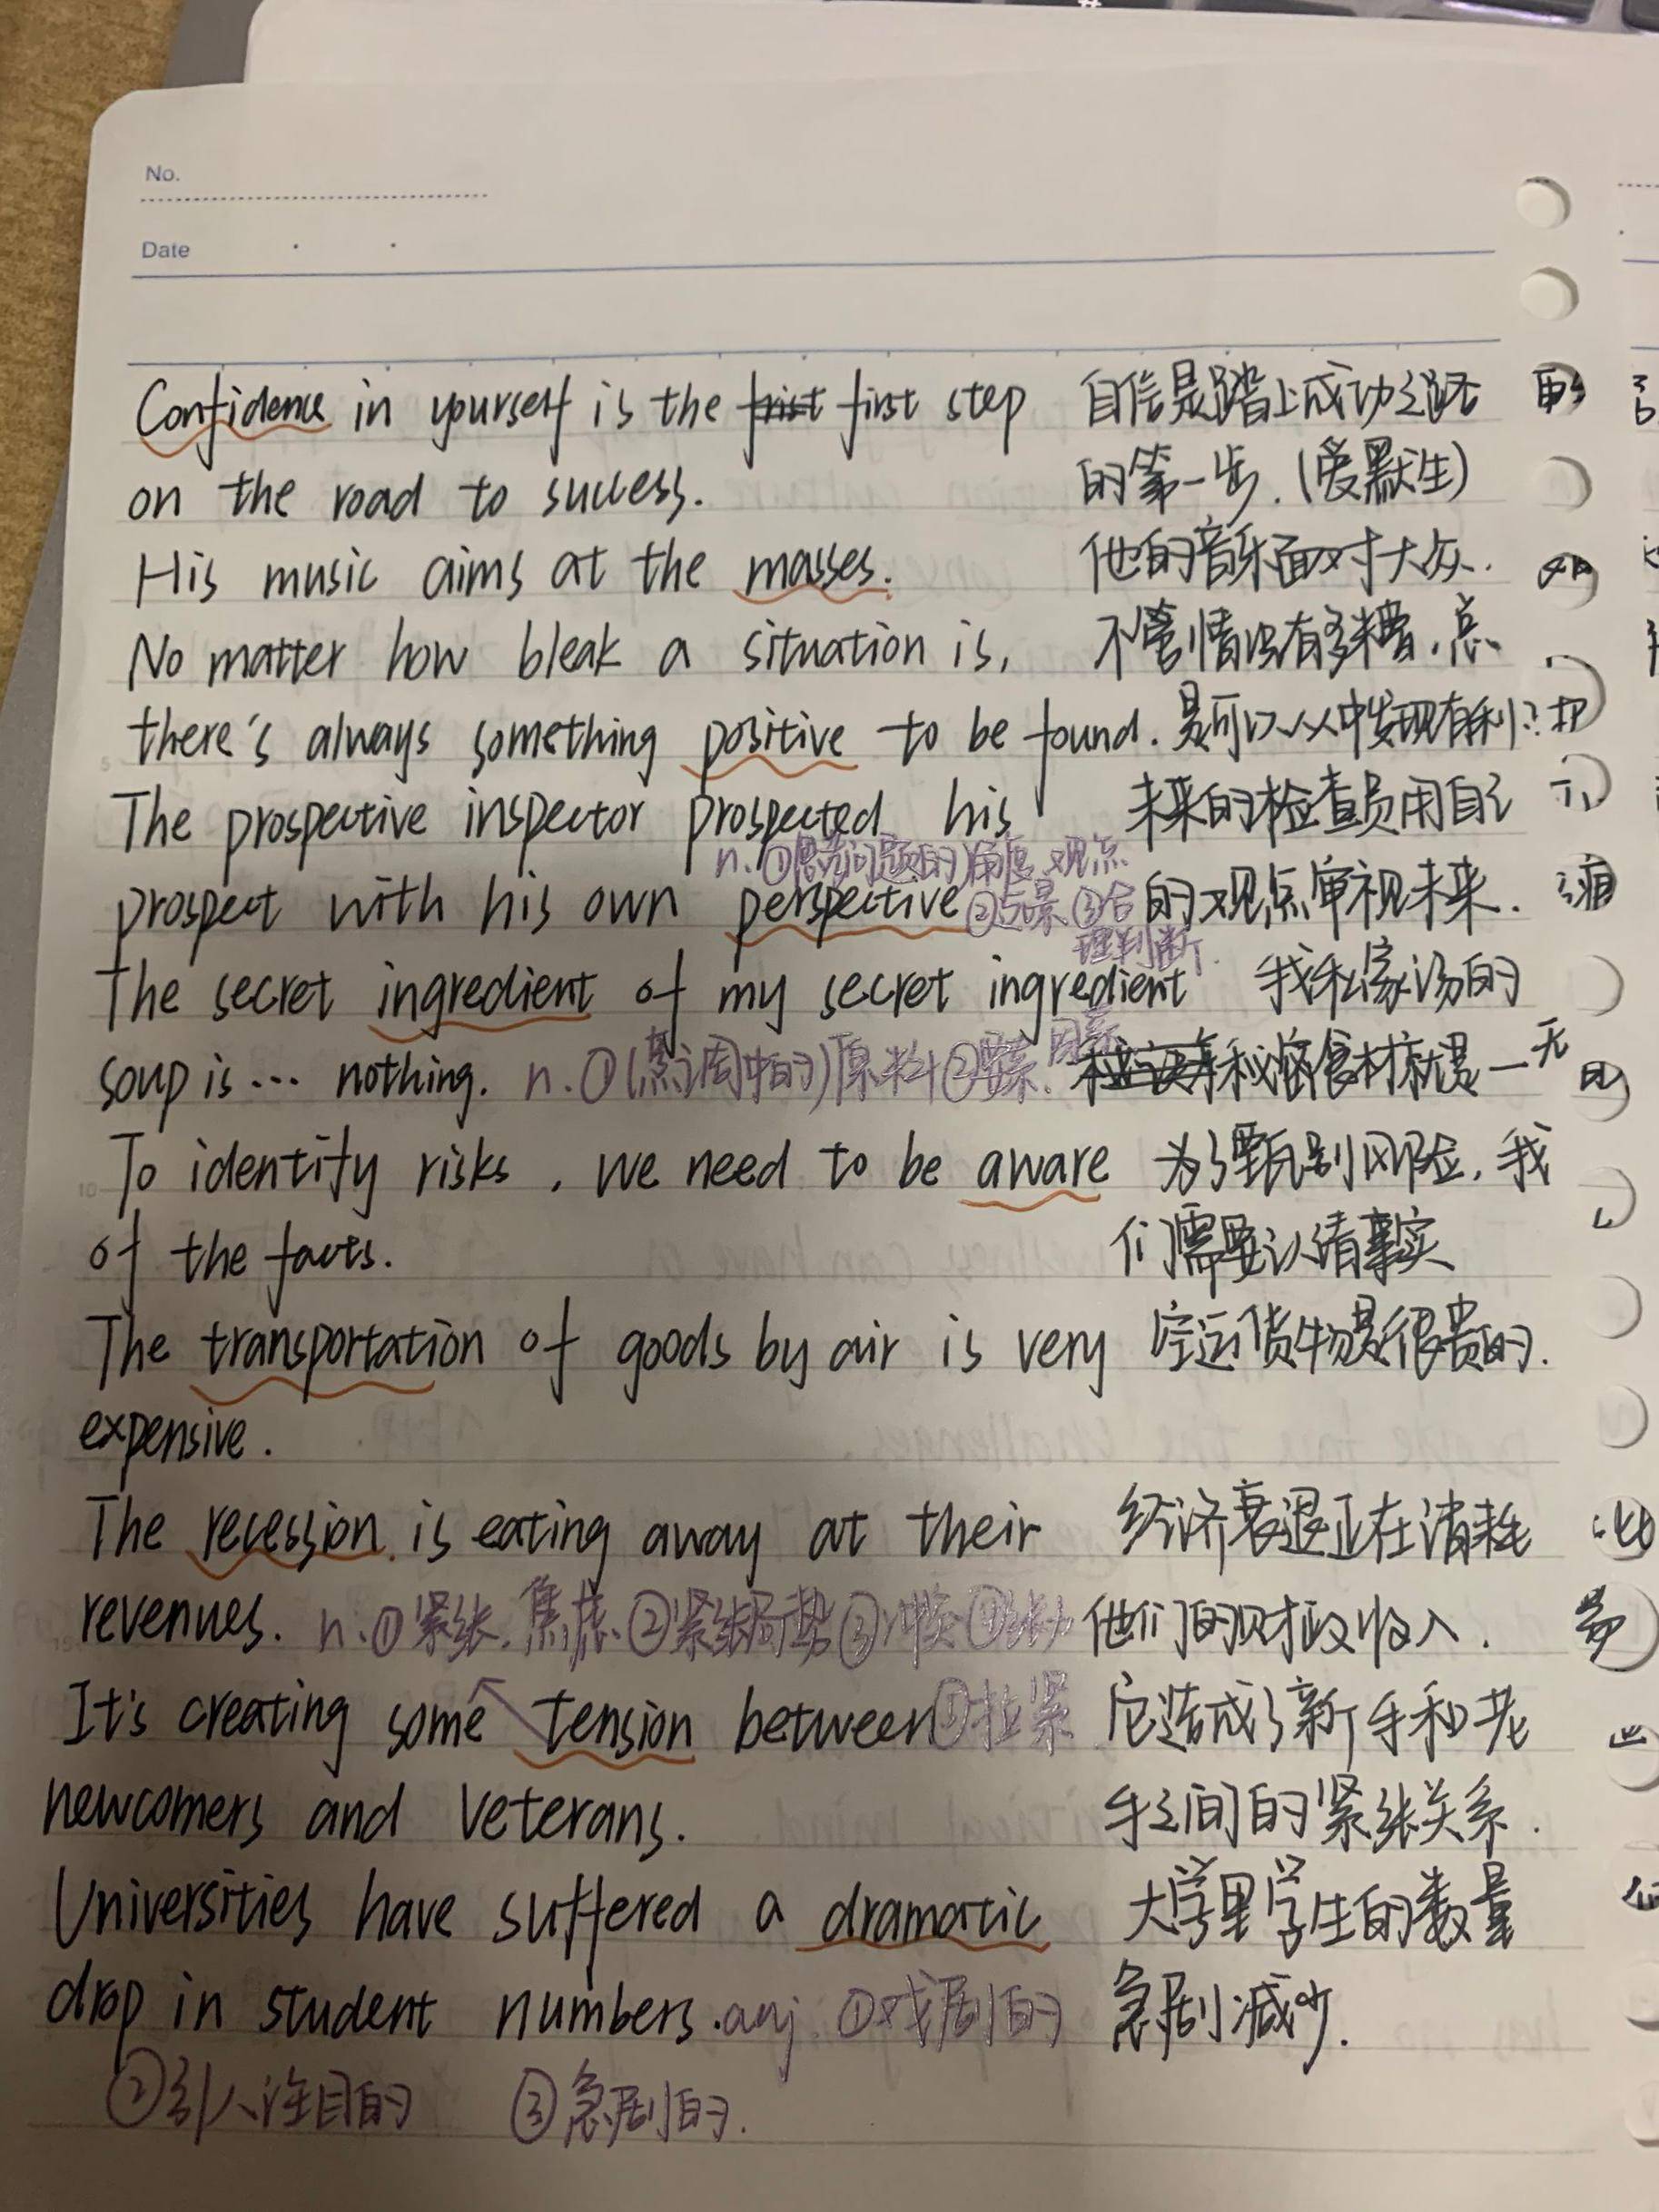 No.
Date
Confidence in yourself is the frist first step 自信是踏上成功之路
on the road to success. 的第一步.(爱默生)
His music aims at the masses. 他的音乐面对大众.
No matter how bleak a situation is, 不管情况有多糟,总
there's always something positive to be found. 是可以从中发现有利
The prospective inspector prospected his 未来的检查员用自己
n.①思考问题的角度,观点
prospect with his own perspective ②远景 ③合 的观点审视未来.
理判断.
The secret ingredient of my secret ingredient 我私家汤的
soup is... nothing. n.①(烹调中的)原料②要素. 因素 私密食材就是一无
To identify risks, we need to be aware 为了甄别风险,我
of the facts. 们需要认清事实
The transportation of goods by air is very 空运货物是很贵的.
expensive.
The recession is eating away at their 经济衰退正在消耗
revenues. n.①紧张,焦虑.②紧张局势③冲突④张力 他们的财政收入.
It's creating some tension between ⑤拉紧 它造成了新手和老
newcomers and veterans. 手之间的紧张关系.
Universities have suffered a dramatic 大学里学生的数量
drop in student numbers. adj. ①戏剧的 急剧减少.
②引人注目的 ③急剧的.